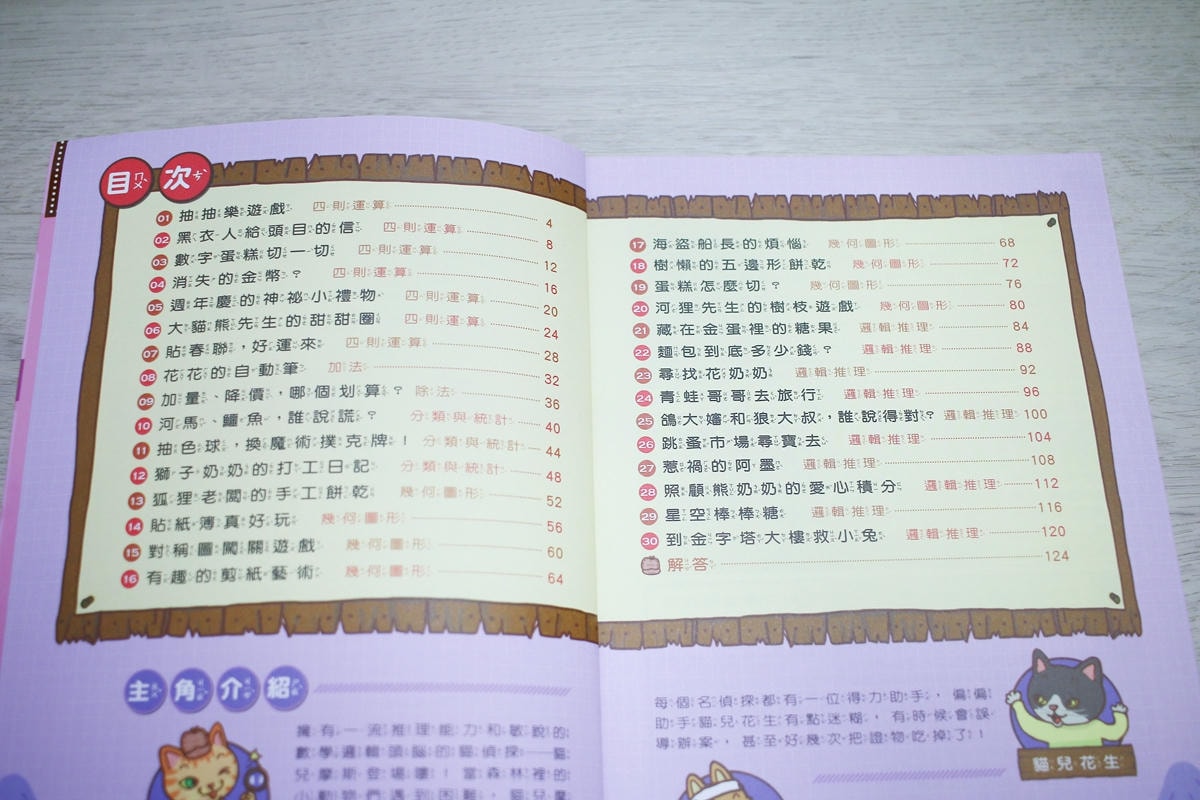 目次
01 抽抽樂遊戲 四則運算 4
02 黑衣人給頭目的信 四則運算 8
03 數字蛋糕切一切 四則運算 12
04 消失的金幣？ 四則運算 16
05 週年慶的神祕小禮物 四則運算 20
06 大貓熊先生的甜甜圈 四則運算 24
07 貼春聯，好運來 四則運算 28
08 花花的自動筆 加法 32
09 加量、降價，哪個划算？ 除法 36
10 河馬、鱷魚，誰說謊？ 分類與統計 40
11 抽色球，換魔術撲克牌！ 分類與統計 44
12 獅子奶奶的打工日記 分類與統計 48
13 狐狸老闆的手工餅乾 幾何圖形 52
14 貼紙簿真好玩 幾何圖形 56
15 對稱圖闖關遊戲 幾何圖形 60
16 有趣的剪紙藝術 幾何圖形 64
17 海盜船長的煩惱 幾何圖形 68
18 樹懶的五邊形餅乾 幾何圖形 72
19 蛋糕怎麼切？ 幾何圖形 76
20 河狸先生的樹枝遊戲 幾何圖形 80
21 藏在金蛋裡的糖果 邏輯推理 84
22 麵包到底多少錢？ 邏輯推理 88
23 尋找花奶奶 邏輯推理 92
24 青蛙哥哥去旅行 邏輯推理 96
25 鴿大嬸和狼大叔，誰說得對？ 邏輯推理 100
26 跳蚤市場尋寶去 邏輯推理 104
27 惹禍的阿墨 邏輯推理 108
28 照顧熊奶奶的愛心積分 邏輯推理 112
29 星空棒棒糖 邏輯推理 116
30 到金字塔大樓救小兔 邏輯推理 120
解答 124
主角介紹
擁有一流推理能力和敏銳的
數學邏輯頭腦的貓偵探——貓
兒摩斯登場嘍！當森林裡的
小動物們遇到困難，貓兒摩
每個名偵探都有一位得力助手，偏偏
助手貓兒花生有點迷糊，有時候會誤
導辦案，甚至好幾次把證物吃掉了！
貓兒花生